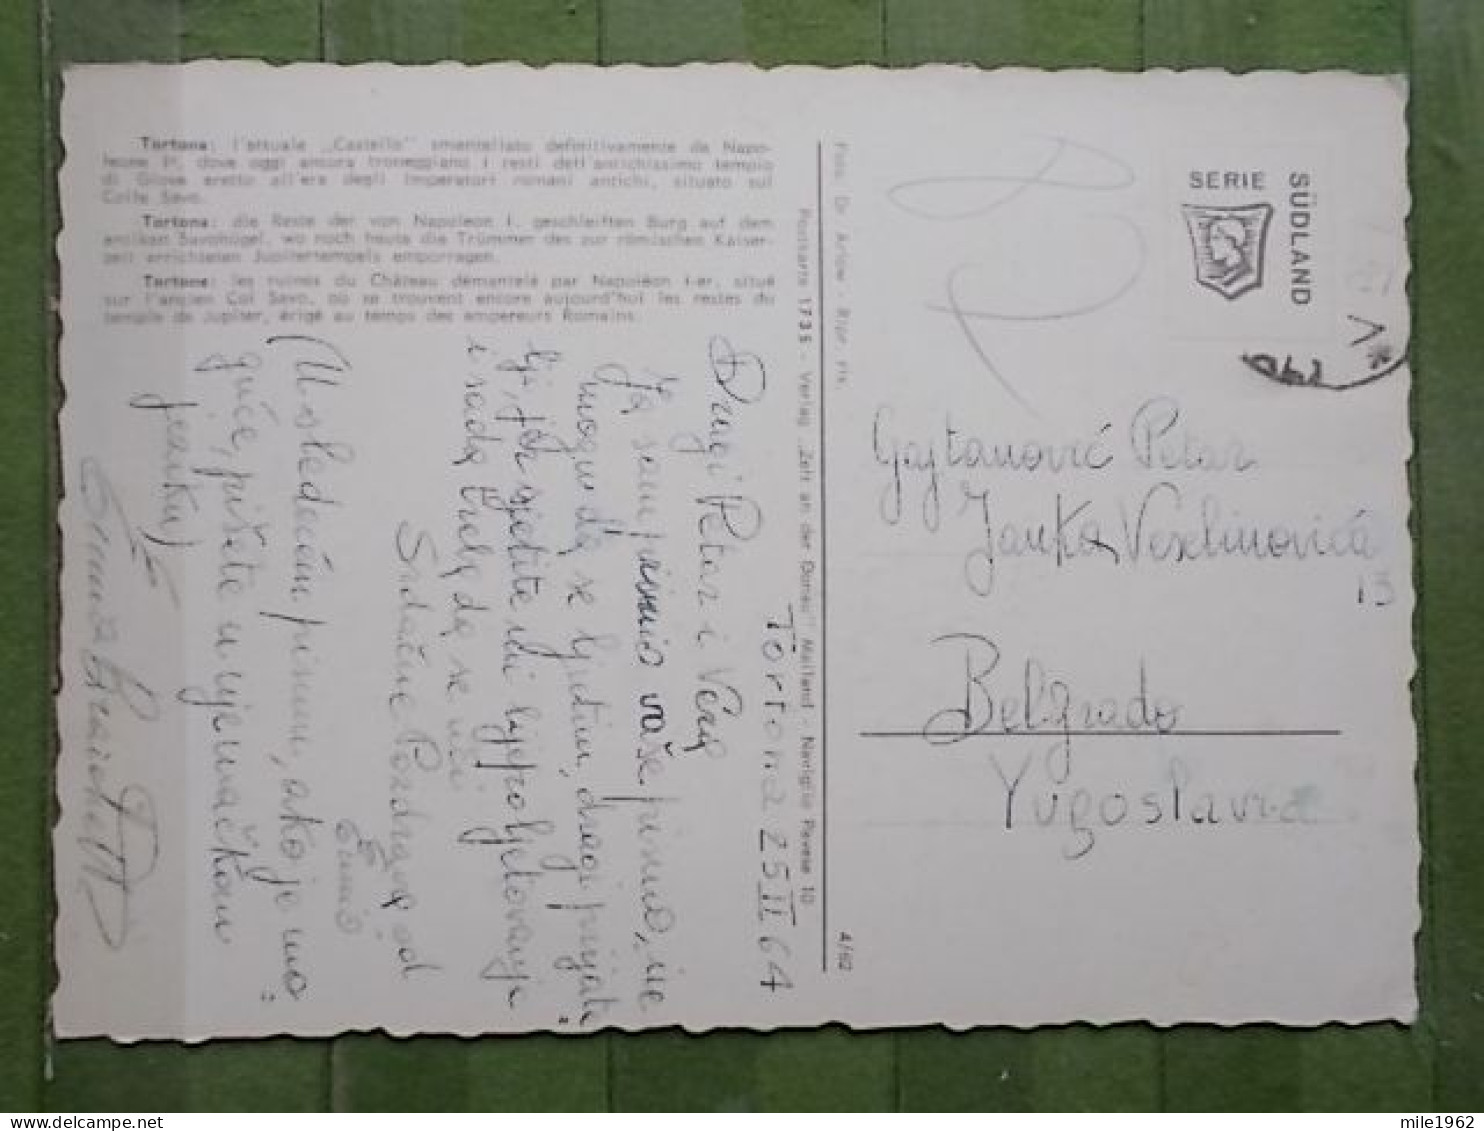 Tortona: l'attuale „Castello" smantellato definitivamente da Napo-
leone Iº, dove oggi ancora troneggiano i resti dell'antichissimo tempio
di Giove eretto all'era degli Imperatori romani antichi, situato sul
Colle Savo.
Tortona: die Reste der von Napoleon I. geschleiften Burg auf dem
antiken Savohügel, wo noch heute die Trümmer des zur römischen Kaiser-
zeit errichteten Jupitertempels emporragen.
Tortona: les ruines du Château démantelé par Napoléon I-er, situé
sur l'ancien Col Savo, où se trouvent encore aujourd'hui les restes du
temple de Jupiter, érigé au temps des empereurs Romains.
Tortona 25 II 64
Dragi Petar i Vera
Ja sam primio vaše pismo, ne
mogu da se ljutim, dragi prijate=
lji, jer sjetite ljepo ljetovanje
i sada treba da se uči
Srdačne Pozdrave od
Ennio
(U sledećem pismu, ako je mo=
guće, pišete u njemačkom
jeziku)
Foto: Dr. Artow - Ripr. vis.
Postkarte 1735 - Verlag „Zelt an der Donau" Mailand - Naviglio Pavese 10
4/62
SERIE
SÜDLAND
Gajtanović Petar
Janka Veselinovića
13
Belgrado
Yugoslavia
mile1962